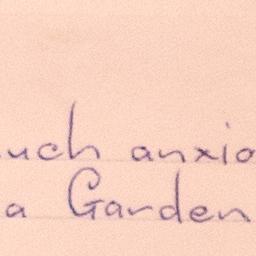 uch anxio
a Garden